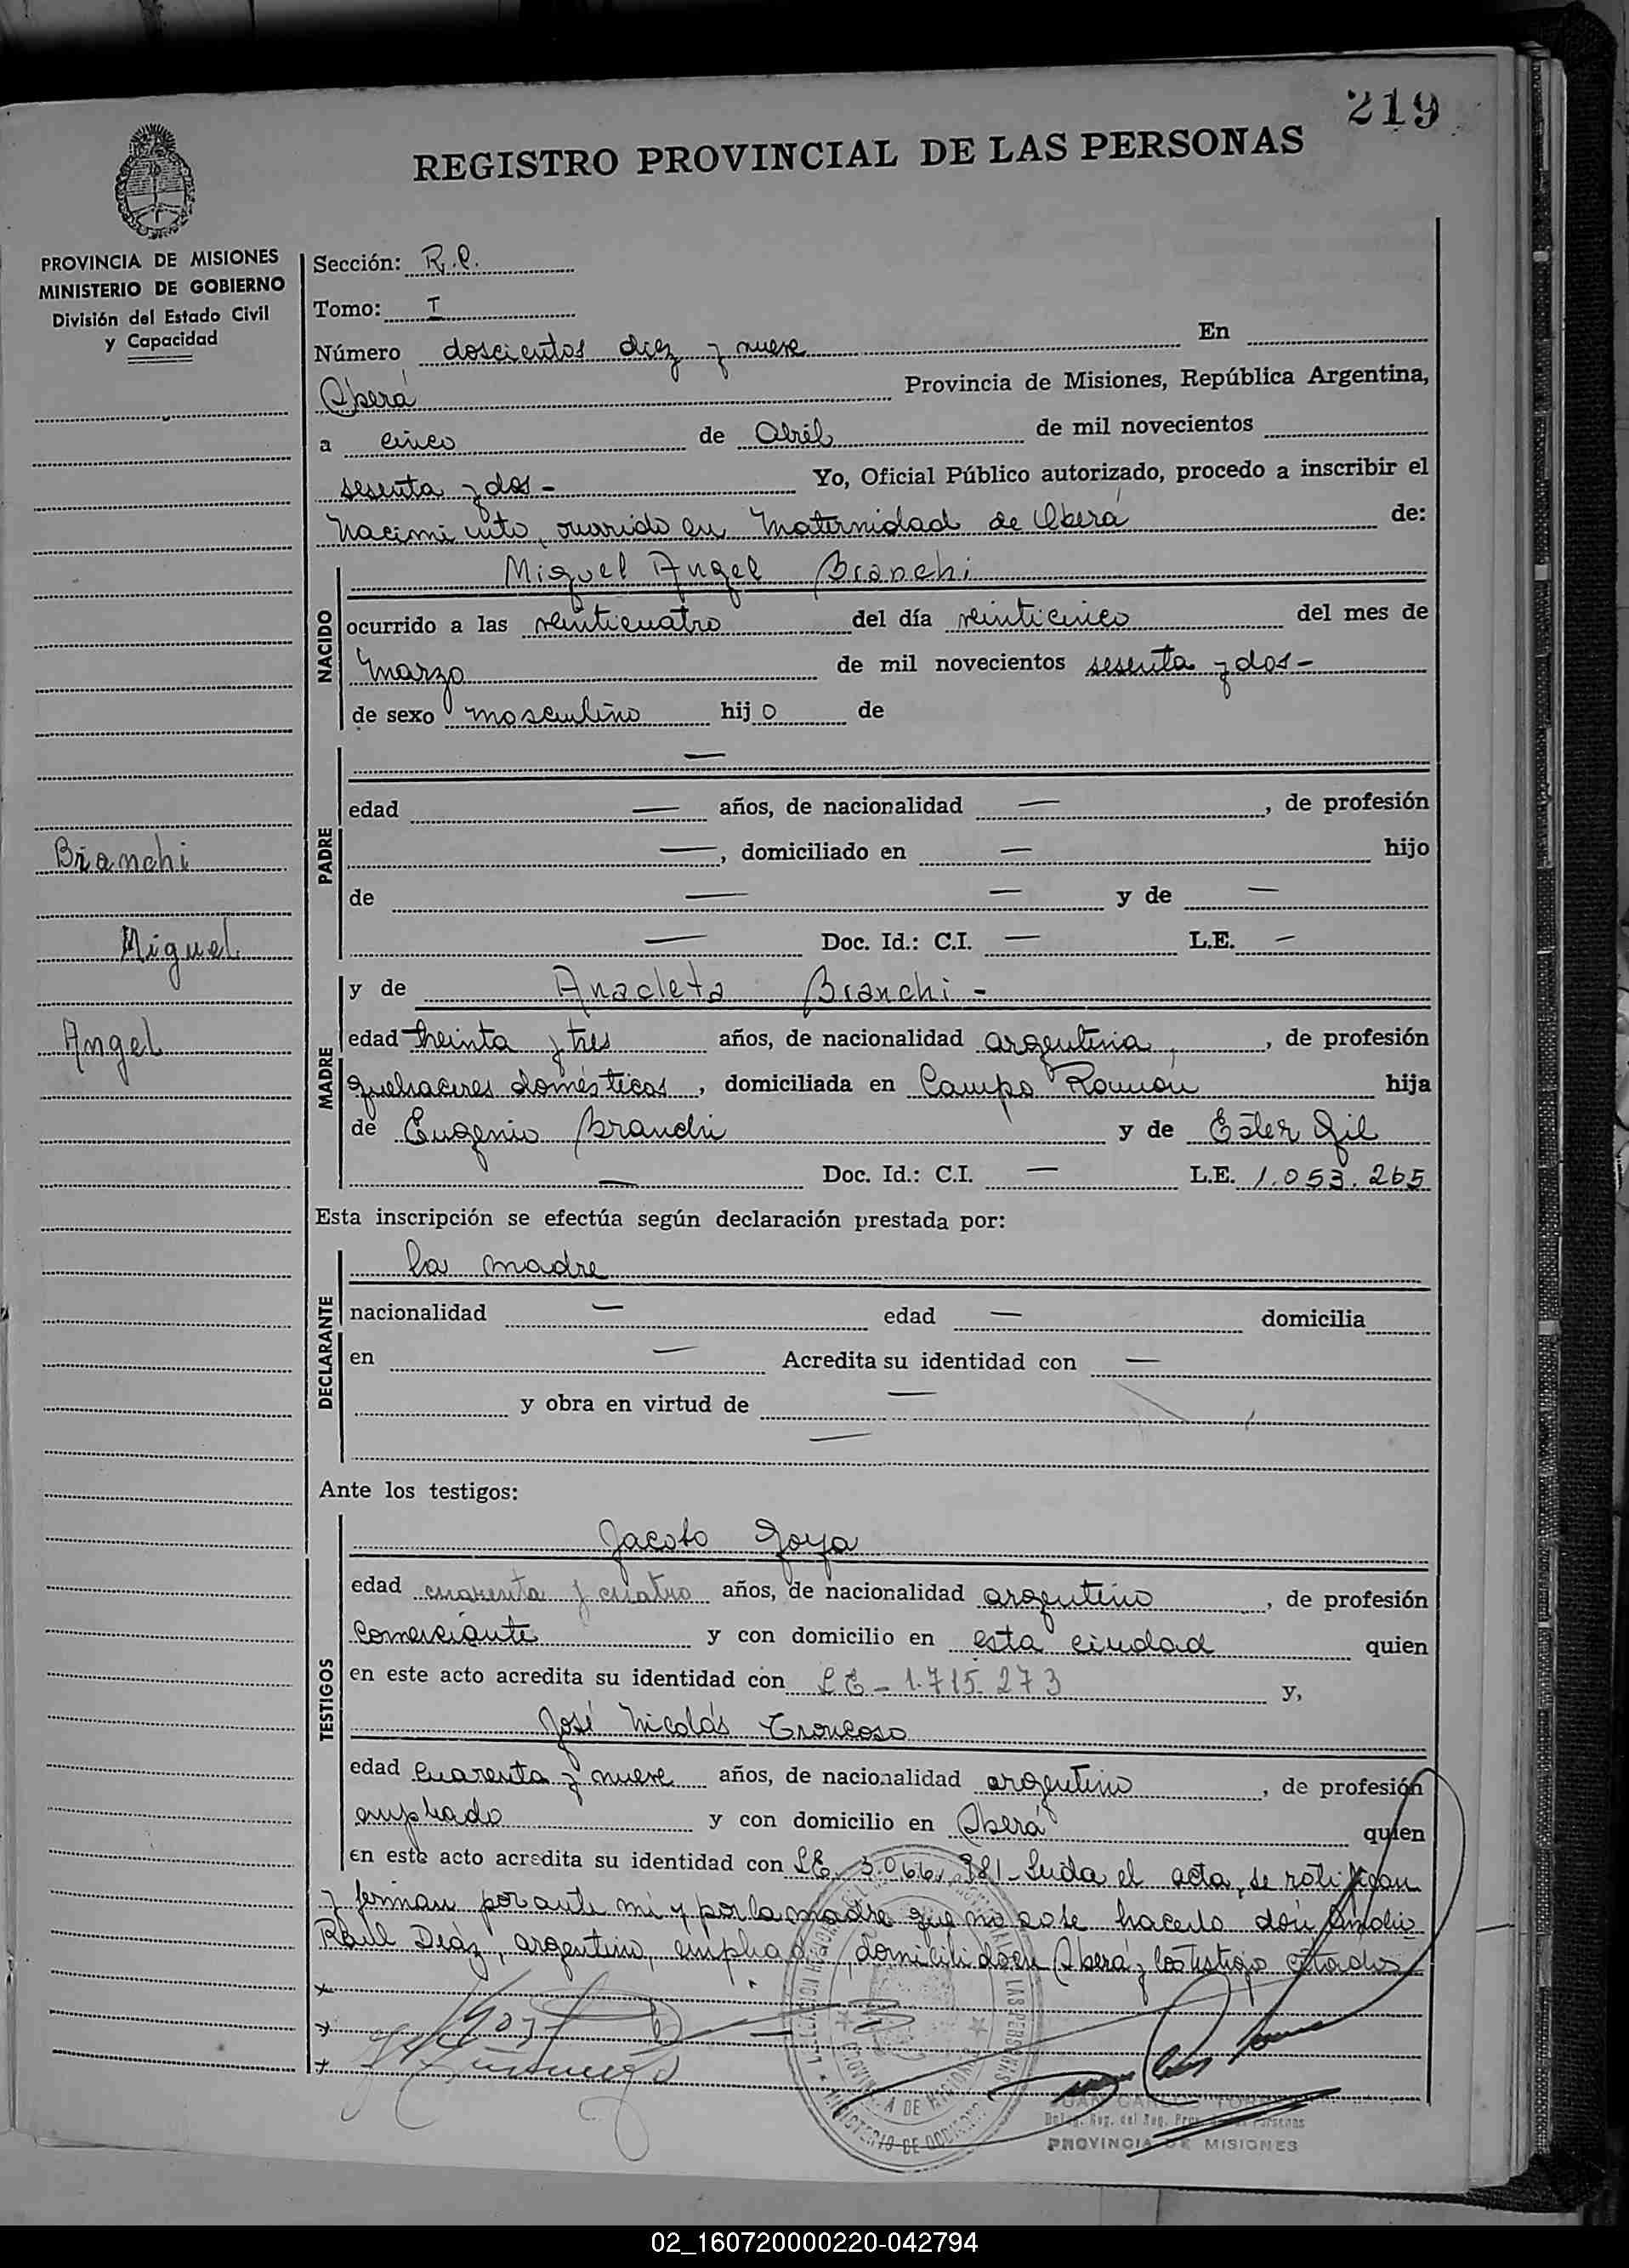 219
REGISTRO PROVINCIAL DE LAS PERSONAS
PROVINCIA DE MISIONES
MINISTERIO DE GOBIERNO
División del Estado Civil
y Capacidad
Bianchi
Miguel
Angel
Sección: R.C.
Tomo: I
Número doscientos diez y nueve En
Oberá Provincia de Misiones, República Argentina,
a cinco de Abril de mil novecientos
sesenta y dos - Yo, Oficial Público autorizado, procedo a inscribir el
Nacimiento, ocurrido en Maternidad de Oberá de:
NACIDO
Miguel Angel Bianchi
ocurrido a las veinticuatro del día veinticinco del mes de
Marzo de mil novecientos sesenta y dos -
de sexo masculino hijo de
PADRE
—
edad — años, de nacionalidad —, de profesión
—, domiciliado en — hijo
de — — y de —
— Doc. Id.: C.I. — L.E. —
MADRE
y de Anacleta Bianchi -
edad treinta y tres años, de nacionalidad argentina, de profesión
quehaceres domésticos, domiciliada en Campo Ramón hija
de Eugenio Branchi y de Ester Gil
— Doc. Id.: C.I. — L.E. 1.053.265
Esta inscripción se efectúa según declaración prestada por:
DECLARANTE
la madre
nacionalidad — edad — domicilia
en — Acredita su identidad con —
y obra en virtud de —
—
Ante los testigos:
TESTIGOS
Jacobo Goya
edad cuarenta y cuatro años, de nacionalidad argentino, de profesión
Comerciante y con domicilio en esta ciudad quien
en este acto acredita su identidad con LE - 1.715.273 y,
José Nicolás Troncoso
edad cuarenta y nueve años, de nacionalidad argentino, de profesión
empleado y con domicilio en Oberá quien
en este acto acredita su identidad con LE. 3.066.981 - Leida el acta, se ratifican
y firman por ante mi y por la madre que no sabe hacerlo don
Raúl Diaz, argentino, empleado, domiciliado en Oberá y los testigo citados
JUAN CARLOS
Deleg. Reg. del Reg. Prov. de las Personas
PROVINCIA DE MISIONES
02_160720000220-042794